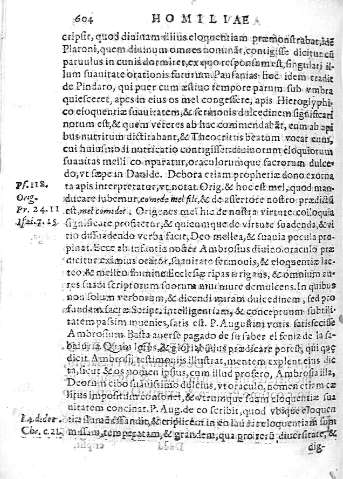 604 HOMILIAE
cripsit, quod diuinam illius eloquentiam præmonstrabat,
Platoni, quem diuinum omnes nominãt, contigisse dicitur cũ
paruulus in cunis dormiret, ex quo responsum est, singulari il
lum suauitate orationis futurum. Pausanias hoc idem tradit
de Pindaro, qui puer cum æstiuo tempore parum sub vmbra
quiesceret, apes in eius os mel congessere, apis Hieroglyphi
co eloquentiæ suauitatem, & sermonis dulcedinem significari
notum est, & quem veteres ab hac commendabãt, eum ab api
bus nutritum dictitabant, & Theocritus beatum vocat
cui huiusmodi nutricatio contigisset: diuinorum eloquiorum
suauitas melli comparatur, oraculorumque sacrorum dulce
do, vt sæpe in Dauide. Debora etiam prophetiæ dono exorna
Ps. 118. ta apis interpretatur, vt notat. Orig. & hoc est mel, quod man
Orig. ducare iubemur, comede mel fili, & de assertore nostro prædictũ
Pr. 24. 11 est, mel comedet. Origenes mel hic de nostra virtute colloquia
Isai. 7. 15. significare profitetur, & quicumque de virtute suadenda, & vi
tio dissuadendo verba facit, Deo mellea, & suauia pocula pro
pinat. Ecce ab infantia noster Ambrosius diuino oraculo præ
dicitur eximius orator, suauitatem sermonis, & eloquentiæ lac
teo, & melleo flumine Ecclesiæ ripas irrigans, & omnium au
res suado scriptorum suorum murmure demulcens. In quibus
non solum verborum, & dicendi miram dulcedinem, sed pro
fundam sacræ Script. intelligentiam, & conceptuum subtili
tatem passim inuenies, satis est. P. Augustini votis satisfecisse
Ambrosium. Basta auerse pagado de su saber el señ
de la sa
biduria. Quam ipsius, & gloria huius prædicare potest, qui
dicit. Ambrosij, testimonijs illustrat, mentem explent eius dic
ta, licut & os nomen ipsius, cum illud profero, Ambrosia illa,
Deorum cibo suauissimo dulcius, vt oraculo, nomen etiam cæ
litus impositum consonet, & vtrumque suam eloquentiæ sua
uitatem concinat. P. Aug. de eo scribit, quod vbique eloquen
tiam
Chr. c. 21. missam, temperatam, & grandem, qua pro rerũ diuersitate, &
dig-